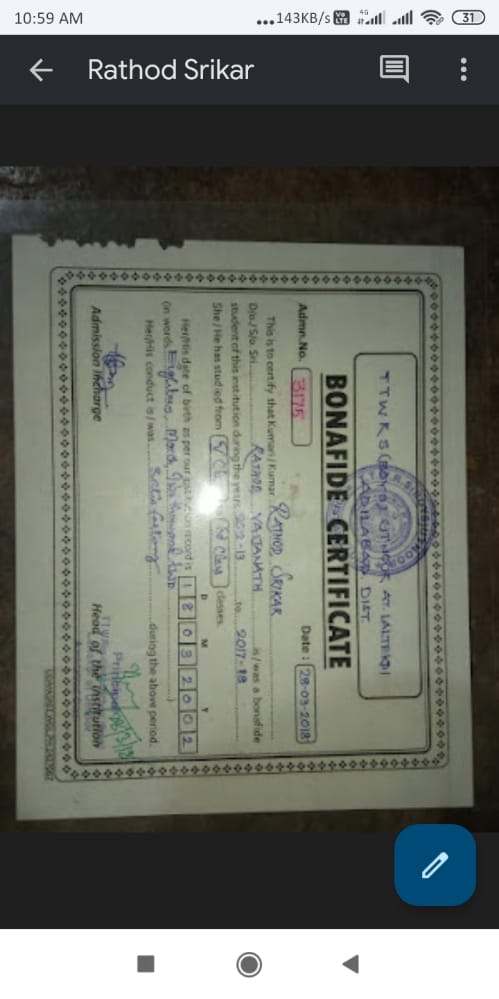 10:59 AM
143KB/s
4G
31
Rathod Srikar
T T W R S (BOYS) UTNOOR AT. LALTEKDI
ADILABAD DIST
BONAFIDE CERTIFICATE
Admn.No. 3175 Date : 28-03-2018
This is to certify that Kumari / Kumar RATHOD SRIKAR
D/o./S/o. Sri RATHOD YADANATH is / was a bonafide
student of this institution during the years 2012-13 to 2017-18
She / He has studied from Class classes.
D M Y
Her/His date of birth as per our institution record is 18 03 2002
(in words Eighteen March Two thousand two )
Her/His conduct is / was Satisfactory during the above period.
Admission Incharge Head of the Institution
Principal